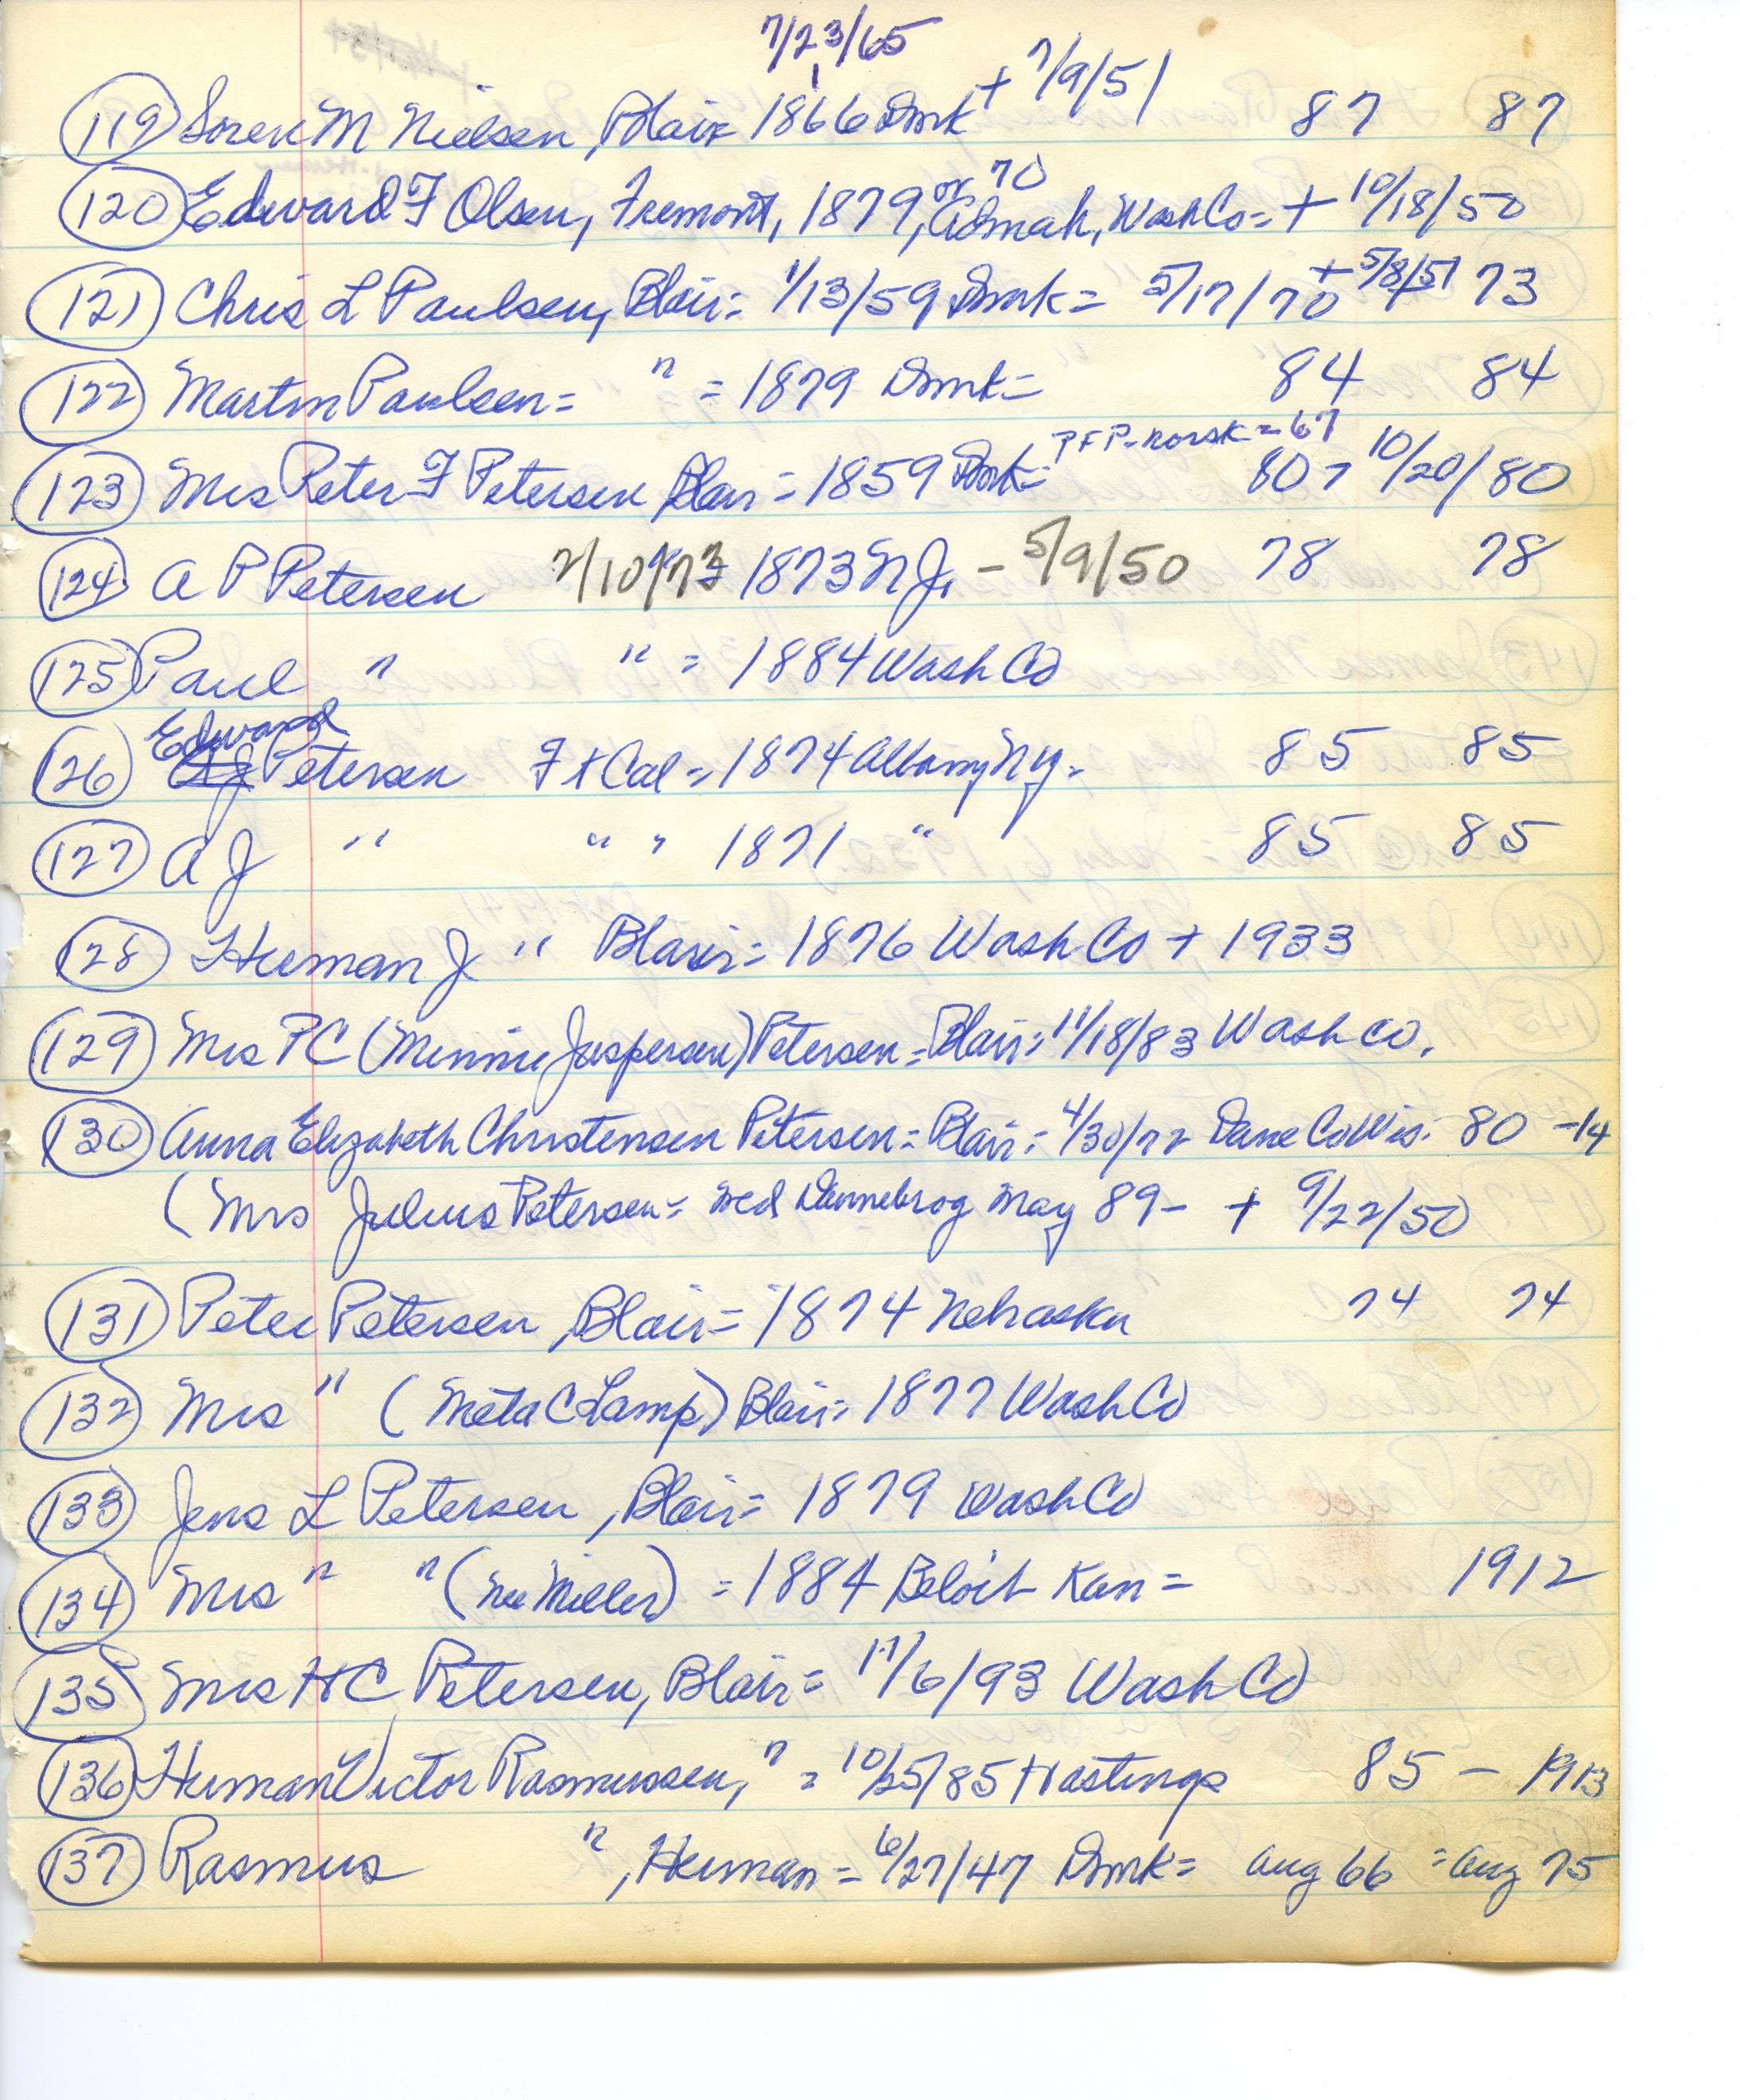 7/23/65
(119) Soren M Nielsen, Blair 1866 Dmk + 7/9/51 87 87
(120) Edward F Olsen, Fremont, 1879, or 70 Admah, Wash Co = + 10/18/50
(121) Chris L Paulsen, Blair = 1/13/59 Dmk = 5/17/70 + 5/8/51 73
(122) Martin Paulsen = " = 1879 Dmk = 84 84
PFP-norsk = 67
(123) Mrs Peter F Petersen, Blair = 1859 Dmk = 80 7 10/20/80
(124) A P Petersen 2/10/73 1873 N J, - 5/9/50 78 78
(125) Paul " " = 1884 Wash Co
Edward
(126) A J Petersen Ft Cal = 1874 Albany N Y = 85 85
(127) A J " " " 1871 " 85 85
(128) Herman J " Blair = 1876 Wash Co + 1933
(129) Mrs PC (Minnie Jaspersen) Petersen = Blair = 11/18/83 Wash Co.
(130) Anna Elizabeth Christensen Petersen = Blair = 4/30/72 Dane Co Wis. 80 - 14
(Mrs Julius Petersen = wed Dannebrog May 89 - + 9/22/50
(131) Peter Petersen, Blair = 1874 Nebraska 74 74
(132) Mrs " (Meta C Lamp) Blair = 1877 Wash Co
(133) Jens L Petersen, Blair = 1879 Wash Co
(134) Mrs " " (Nee Miller) = 1884 Beloit Kan = 1912
(135) Mrs HC Petersen, Blair = 11/6/93 Wash Co
(136) Herman Victor Rasmussen, " = 10/25/85 Hastings 85 - 1913
(137) Rasmus ", Herman = 6/27/47 Dmk = Aug 66 = Aug 75